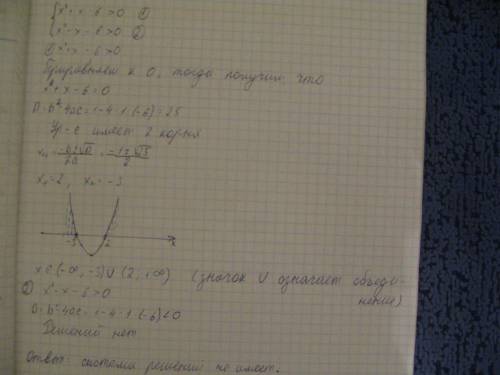 { x²+x-6>0 ①
{ x²-x-6>0 ②
① x²+x-6>0
Приравняем к 0, тогда получим что
x²+x-6=0
D=b²-4ac=1-4·1·(-6)=25
Ур-е имеет 2 корня
x₁,₂=(-b±√D)/2a=(-1±√25)/2
x₁=2, x₂=-3
-3 2 x
x∈(-∞,-3)∪(2,+∞) (значок ∪ означает объеди-
нение)
② x²-x-6>0
D=b²-4ac=1-4·1·(-6)<0
Решений нет
Ответ: система решений не имеет.